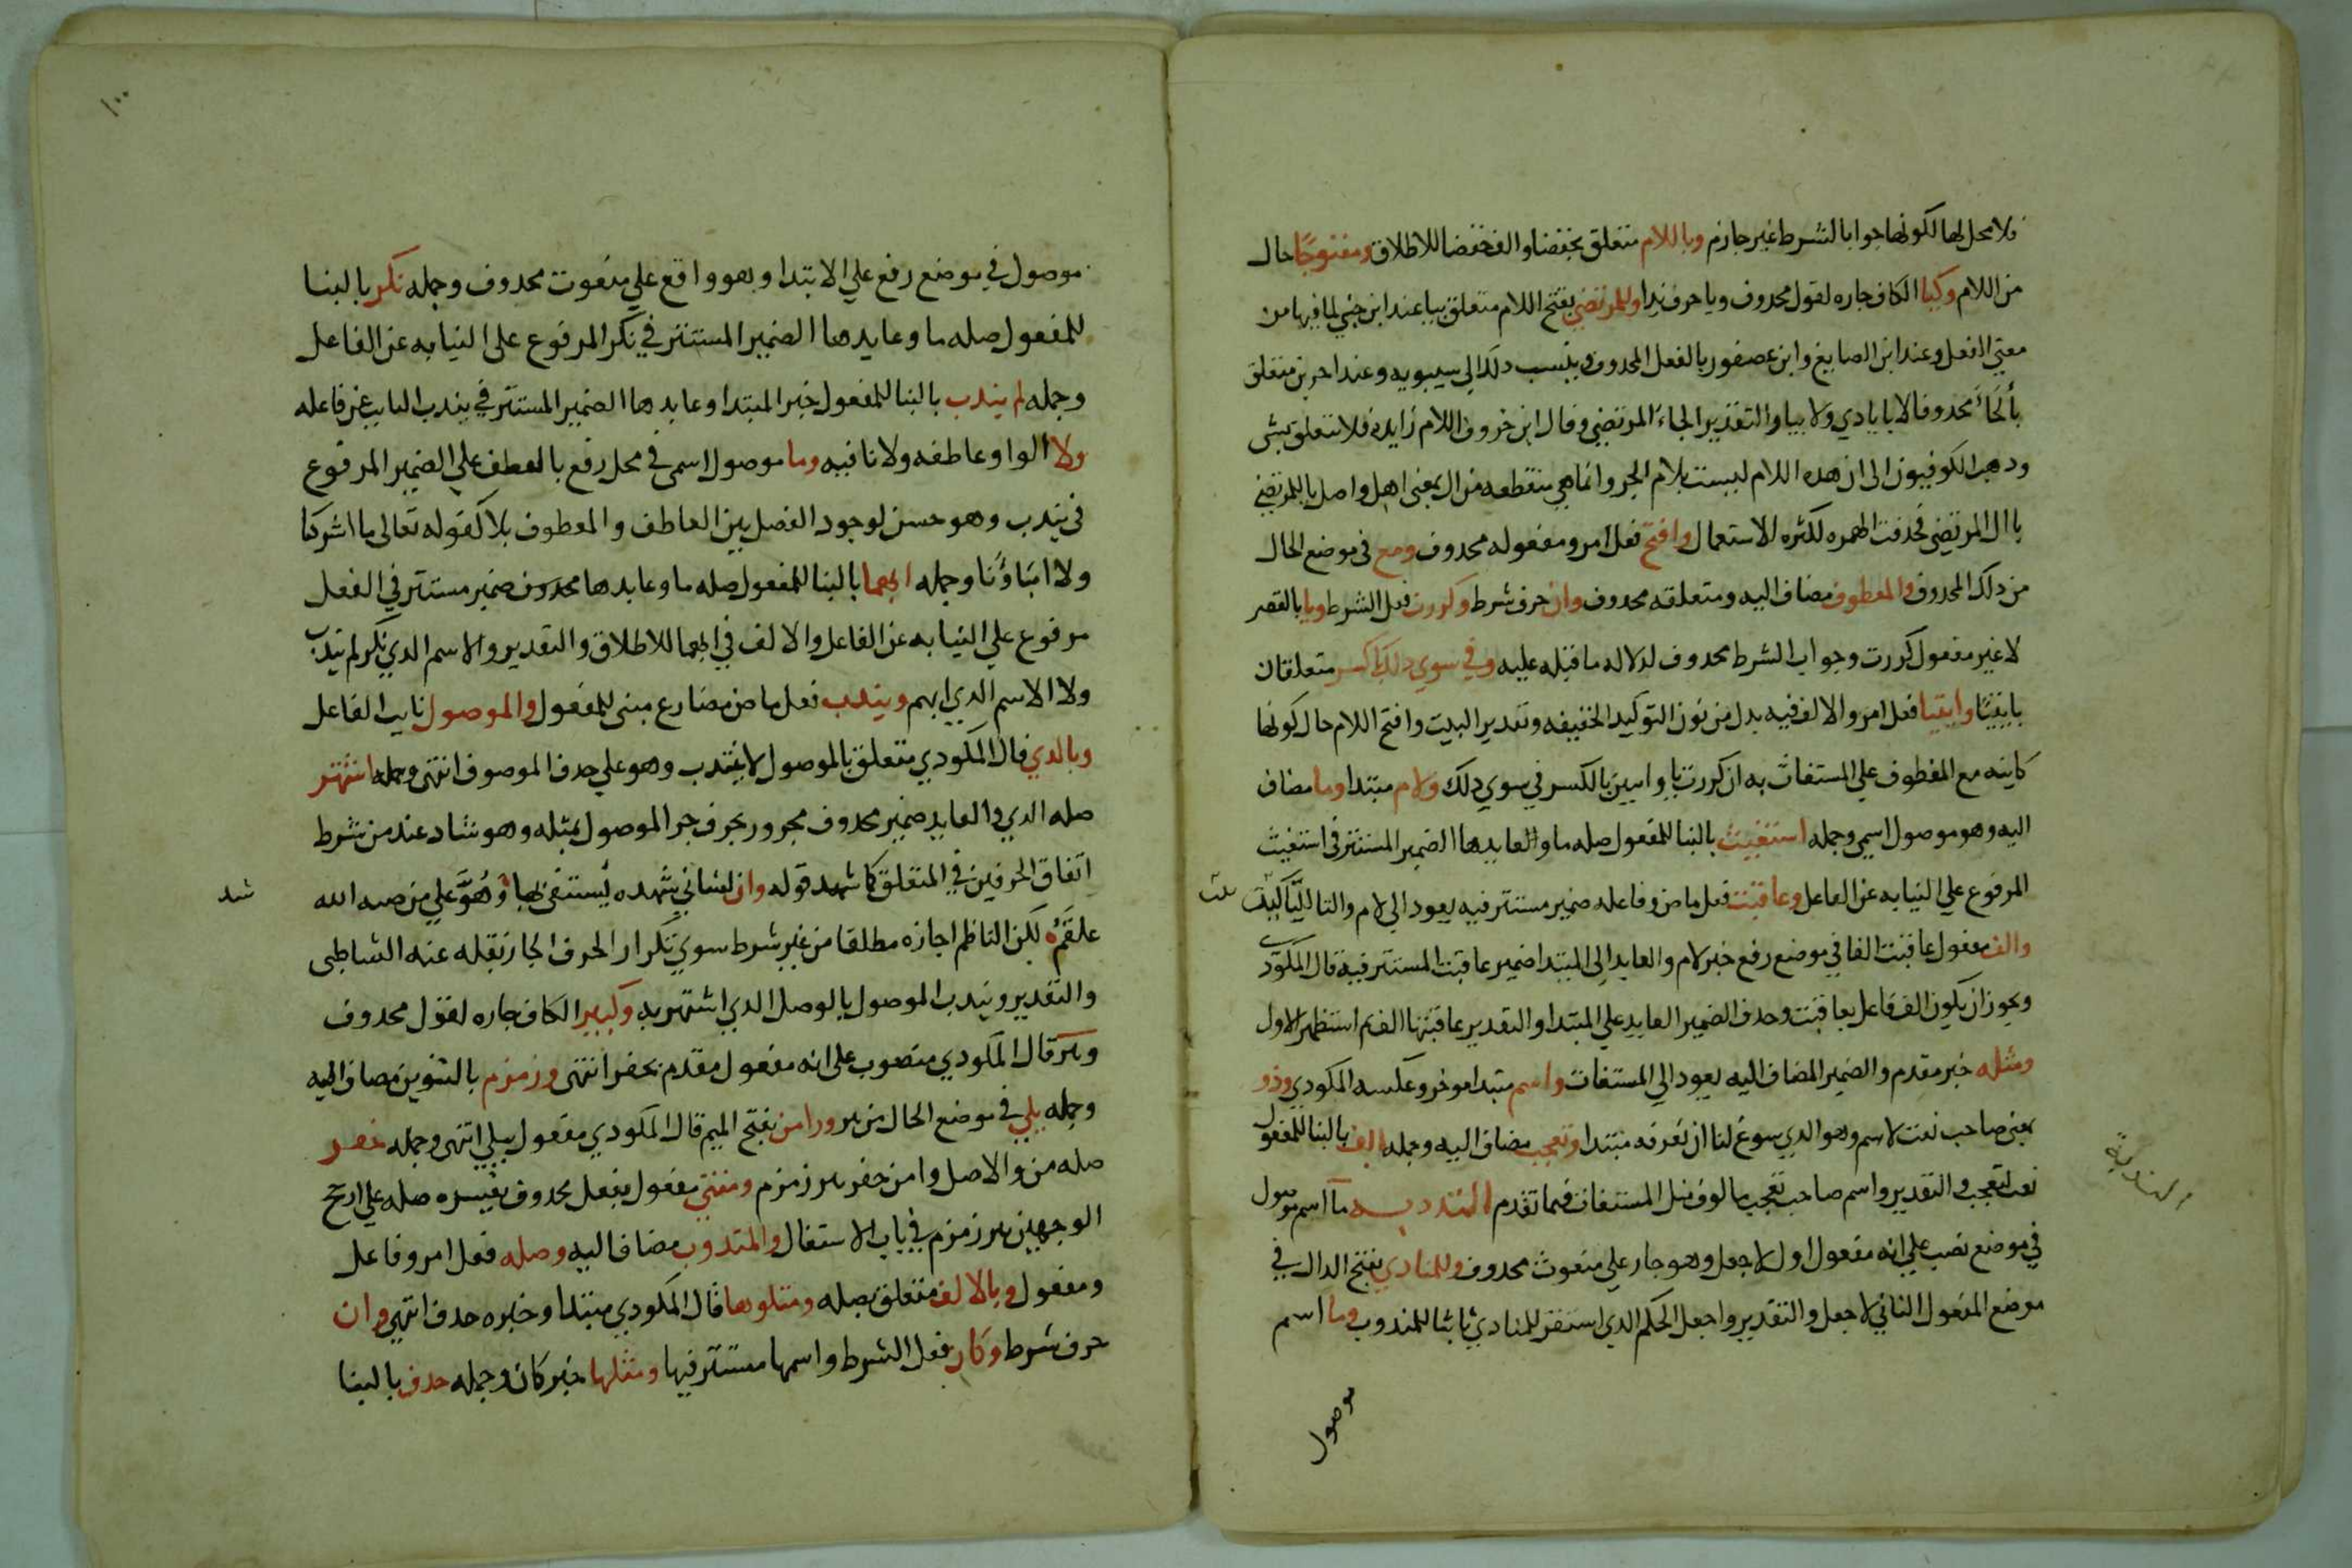 فلا محل لها لكونها جوابا لشرط غير جازم وباللام متعلق بخفضا والف خفضا للاطلاق ومفتوحًا حال
من اللام وكيا الكاف جاره لقول محدوف ويا حرف ندا وللمرتضي بفتح اللام متعلق بيا عند ابن جني لما فيها من
معني الفعل وعند ابن الصايغ وابن عصفور بالفعل المحدوف وينسب دلك الي سيبويه وعند اخرين متعلق
بألتجأ محدوفا لا بايادي ولا بيا والتقدير الجاء للمرتضي وقال ابن خروف اللام زايده فلا تتعلق بشي
ودهب الكوفيون الى ان هده اللام ليست بلام الجر وانما هي منقطعه من ال بمعنى اهل واصل يا للمرتضي
يا ال المرتضي فحدفت الهمزه لكثره الاستعمال وافتح فعل امر ومفعوله محدوف ومع فى موضع الحال
من دلك المحدوف والمعطوف مضاف اليه ومتعلقه محدوف وان حرف شرط وكررت فعل الشرط ويا بالقصر
لا غير مفعول كررت وجواب الشرط محدوف لدلاله ما قبله عليه وفي سوي دلك بالكسر متعلقان
بايتيا وايتيا فعل امر والالف فيه بدل من نون التوكيد الخفيفه وتقدير البيت وافتح اللام حال كونها
كاينه مع المعطوف علي المستغاث به ان كررت يا وايتين بالكسر في سوي دلك ولام مبتدا وما مضاف
اليه وهو موصول اسمي وجمله استغيث بالبنا للمفعول صله ما والعايد ها الضمير المستتر فى استغيث
المرفوع علي النيابه عن الفاعل وعاقبت فعل ماض وفاعله ضمير مستتر فيه يعود الي لام والتا للتانيث
والف مفعول عاقبت الفا في موضع رفع خبر لام والعايد الى المبتدا ضمير عاقبت المستتر فيه قال المكودي
ويجوز ان يكون الف فاعل بعاقبت وحدف الضمير العايد علي المبتدا والتقدير عاقبتها الف ثم استظهر الاول
ومثله خبر مقدم والضمير المضاف اليه يعود الي المستغاث واسم مبتدا موخر وعكسه المكودي وذو
بمعنى صاحب نعت لاسم وهو الدي سوغ لنا ان نعربه مبتدا وتعجب مضاف اليه وجمله الف بالبنا للمفعول
نعت لتعجب والتقدير واسم صاحب تعجب مالوف مثل المستغاث فيما تقدم الندبه ما اسم موصول
في موضع نصب علي انه مفعول اول لاجعل وهو جار علي منعوت محدوف وللمنادي بفتح الدال في
موضع المفعول الثاني لاجعل والتقدير واجعل الحكم الدي استقر للمنادي ثابتا للمندوب وما اسم
موصول
الندبة
موصول في موضع رفع علي الابتدا وهو واقع علي منعوت محدوف وجمله نكر بالبنا
للمفعول صله ما وعايدها الضمير المستتر في نكر المرفوع على النيابه عن الفاعل
وجمله لم يندب بالبنا للمفعول خبر المبتدا وعايدها الضمير المستتر في يندب النايب عن فاعله
ولا الواو عاطفه ولا نافيه وما موصول اسمى في محل رفع بالعطف علي الضمير المرفوع
فى يندب وهو حسن لوجود الفصل بين العاطف والمعطوف بلا كقوله تعالى ما اشركنا
ولا اباؤنا وجمله ابهما بالبنا للمفعول صله ما وعايدها محدوف ضمير مستتر في الفعل
مرفوع علي النيابه عن الفاعل والالف في ابهما للاطلاق والتقدير والاسم الدي نكر لم يندب
ولا الاسم الدي ابهم ويندب فعل ماض مضارع مبنى للمفعول والموصول نايب الفاعل
وبالدي قال المكودي متعلق بالموصول لا بيندب وهو علي حدف الموصوف انتهى وجمله اشتهر
صله الدي والعايد ضمير محدوف مجرور بحرف جر الموصول بمثله وهو شاد عند من شرط
اتفاق الحرفين في المتعلق كما شهد قوله وان لساني شهده يُستشفى بها وهُوَّ علي من صبه الله
شد
علقَمُ لكن الناظم اجازه مطلقا من غير شرط سوي تكرار الحرف الجار نقله عنه الشاطبى
والتقدير ويندب الموصول بالوصل الدي اشتهر به وكبير الكاف جاره لقول محدوف
وبير قال المكودي منصوب على انه مفعول مقدم بحفر انتهى وزمزم بالتنوين مضاف اليه
وجمله يلي في موضع الحال من بير ورا من بفتح الميم قال المكودي مفعول بيلي انتهى وجمله حفر
صله من والاصل وامن حفر بير زمزم ومنتهي مفعول بفعل محدوف يفسره صله علي ارجح
الوجهين بير زمزم في باب الاشتغال والمندوب مضاف اليه وصله فعل امر وفاعل
ومفعول وبالالف متعلق بصله ومتلوها قال المكودي مبتدا وخبره حدف انتهي وان
حرف شرط وكان فعل الشرط واسمها مستتر فيها ومثلها خبر كان وجمله حدف بالبنا
١٠٠